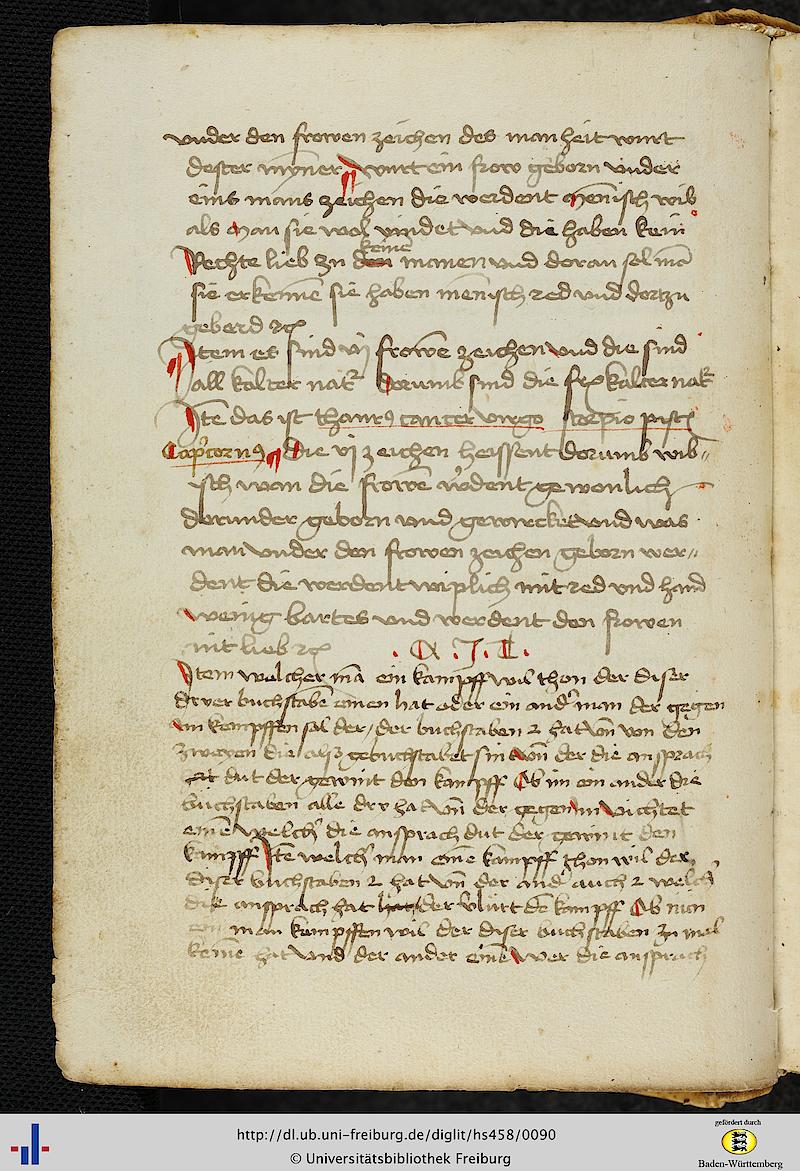 vnder den frowen zeichen des manheit wurt
dester mÿner wurt ein frow geborn vnder
eins mans zeichen die werdent menisch wib
als man sie wol vindet vnd die haben kein
Rechte lieb zu keine manen vnd doran sol mā
sie erkennē sie haben menisch red vnd dortzu
geberd
Item es sind vj frowē zeichen vnd die sind
all kalter nat᷑ dorumb sind die kalter nat᷑
Itē das ist thaur9 cancer virgo scorpio pisc
Capcorn9 die vj zeichen heissent dorumb wib〃
isch wan die frowē w᷑dent gewonlich
dorunder geborn vnd gewircket vnd was
man vnder den frowen zeichen geborn wer〃
dent die werdent wiplich mit red vnd hand
wenig bartes vnd werdent den frowen
nit lieb
. A . J . T .
Item welcher mā ein kampff wil thon der diser
dryer buchstabē einen hat oder ein and᷑ man der gegen
im kempffen sol der, der buchstaben 2 hat von den
zweyen die also gebuchstabet sin der die ansprach
dut der gewint den kampff Ob im ein ander die
buchstaben alle dry hat der gegen im vichtet
einē welch᷑ die ansprach dut der gewint den
kampff Itē welch᷑ man eine kampff thon wil der
diser buchstaben 2 hat der and᷑ auch 2 welch᷑
die ansprach hat der vlürt dē kampff Ob nun
ein man kempffen wil der diser buchstaben zu mal
keinē hat vnd der ander einē wer die ansprach
http://dl.ub.uni-freiburg.de/diglit/hs458/0090
© Universitätsbibliothek Freiburg
gefördert durch
Baden-Württemberg